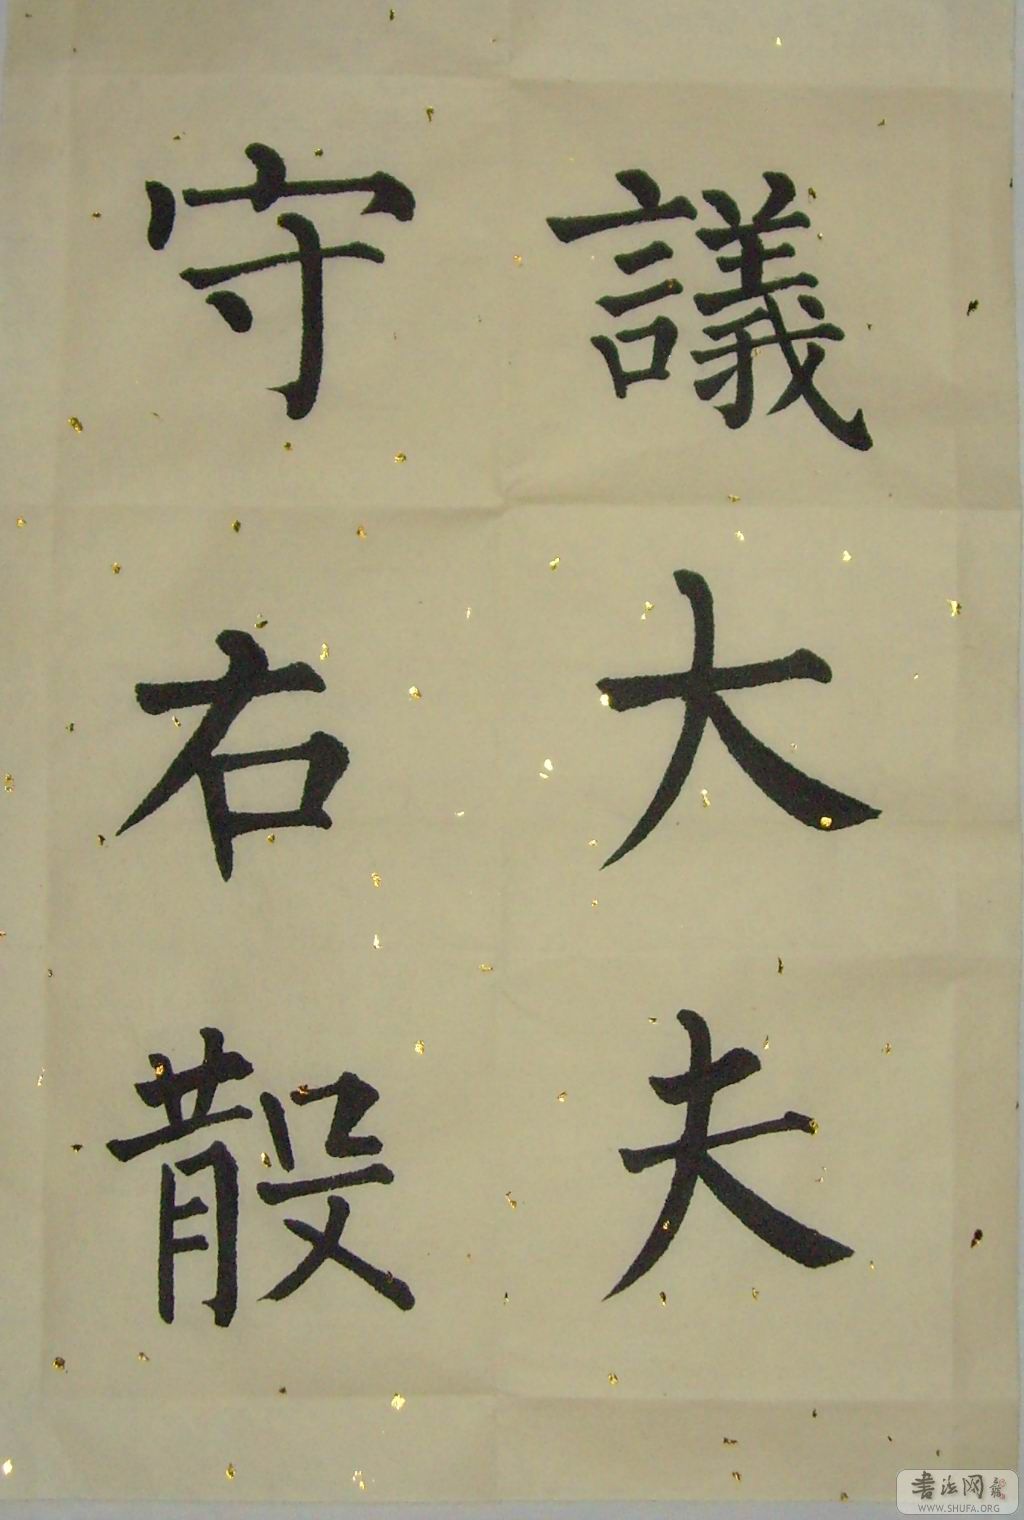 議大夫
守右散
书法网
WWW.SHUFA.ORG